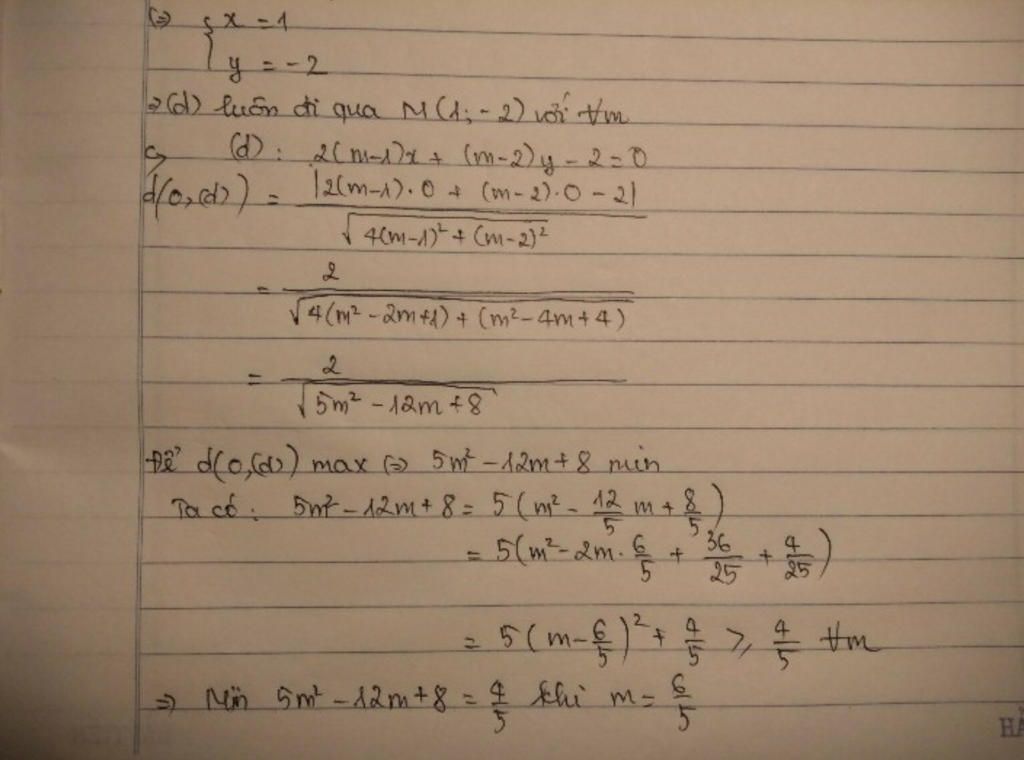 (=> { x = 1
y = -2
=> (d) luôn đi qua M(1; -2) với ∀m
c, (d): 2(m-1)x + (m-2)y - 2 = 0
d(0,(d)) = |2(m-1)·0 + (m-2)·0 - 2| / √4(m-1)² + (m-2)²
= 2 / √4(m² - 2m+1) + (m² - 4m + 4)
= 2 / √5m² - 12m + 8
Để d(0,(d)) max (=> 5m² - 12m + 8 min
Ta có: 5m² - 12m + 8 = 5(m² - 12/5 m + 8/5)
= 5(m² - 2m · 6/5 + 36/25 + 4/25)
= 5(m - 6/5)² + 4/5 ≥ 4/5 ∀m
=> Min 5m² - 12m + 8 = 4/5 khi m = 6/5